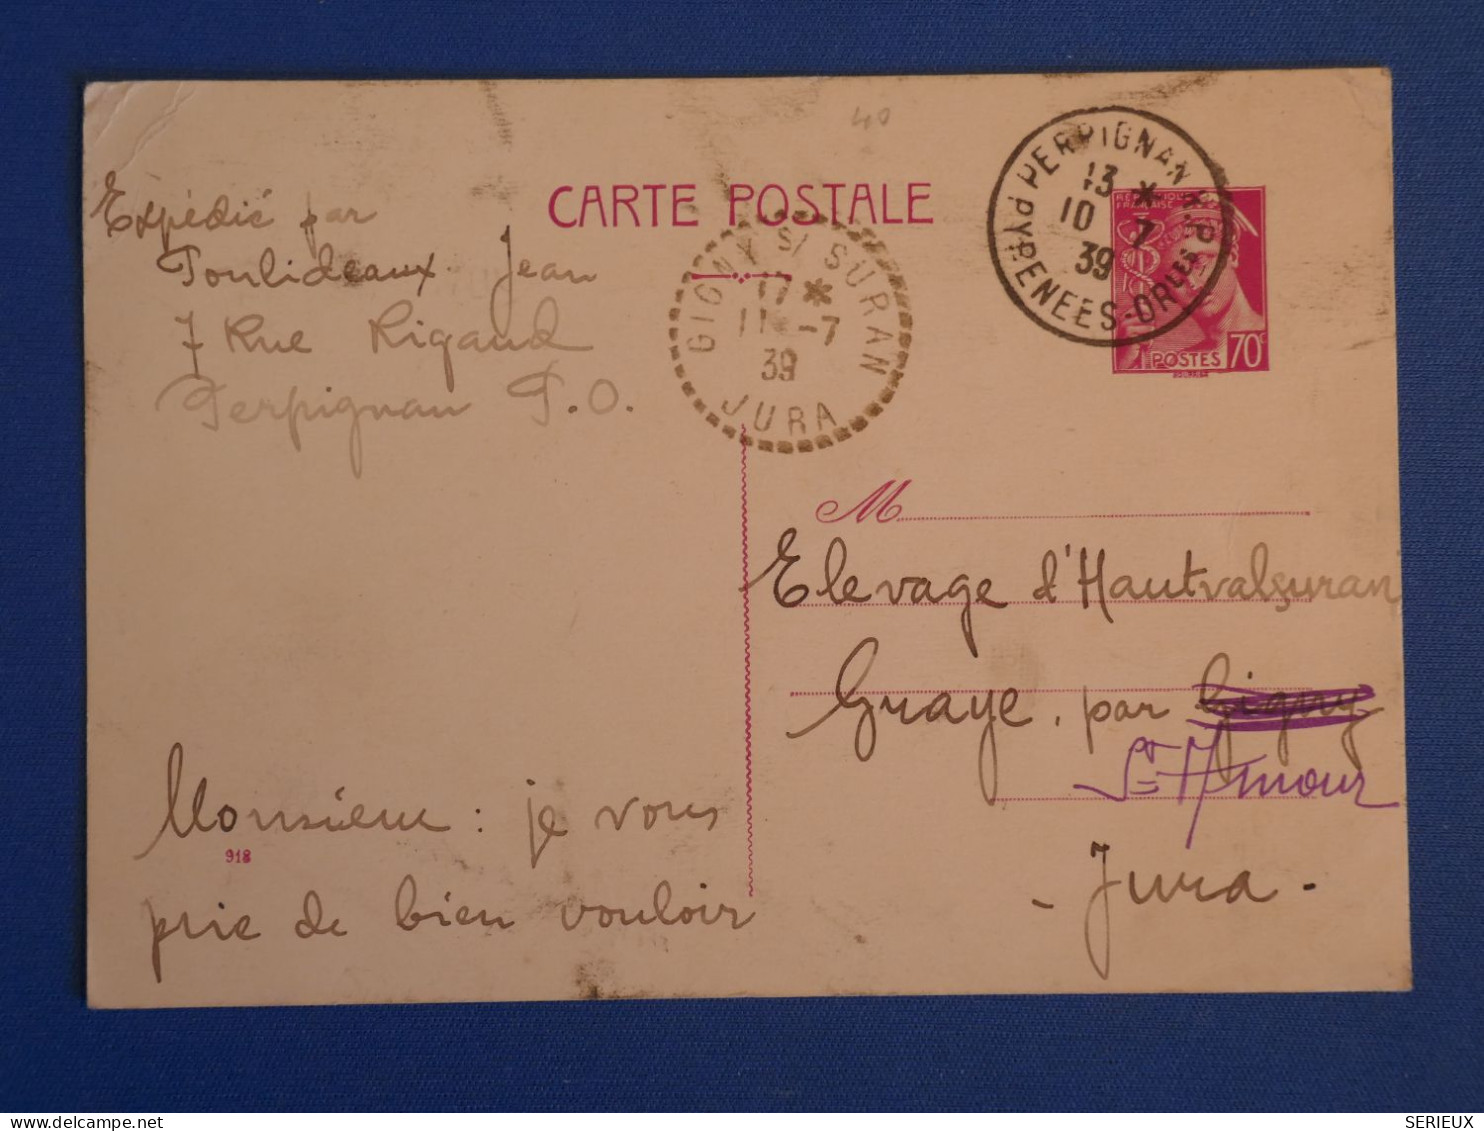 40
CARTE POSTALE
Expédié par
Poulideaux Jean
7 Rue Rigaud
Perpignan P.O.
GIGNY S/ SURAN
17 *
11 -7
39
JURA
PERPIGNAN R.P.
13 *
10 7
39
PYRENEES-ORLES
REPUBLIQUE
FRANÇAISE
POSTES 70c
M
Elevage d'Hautvalsuran
Graye. par Gigny
St Amour
- Jura -
Monsieur : je vous
918
prie de bien vouloir
SERIEUX